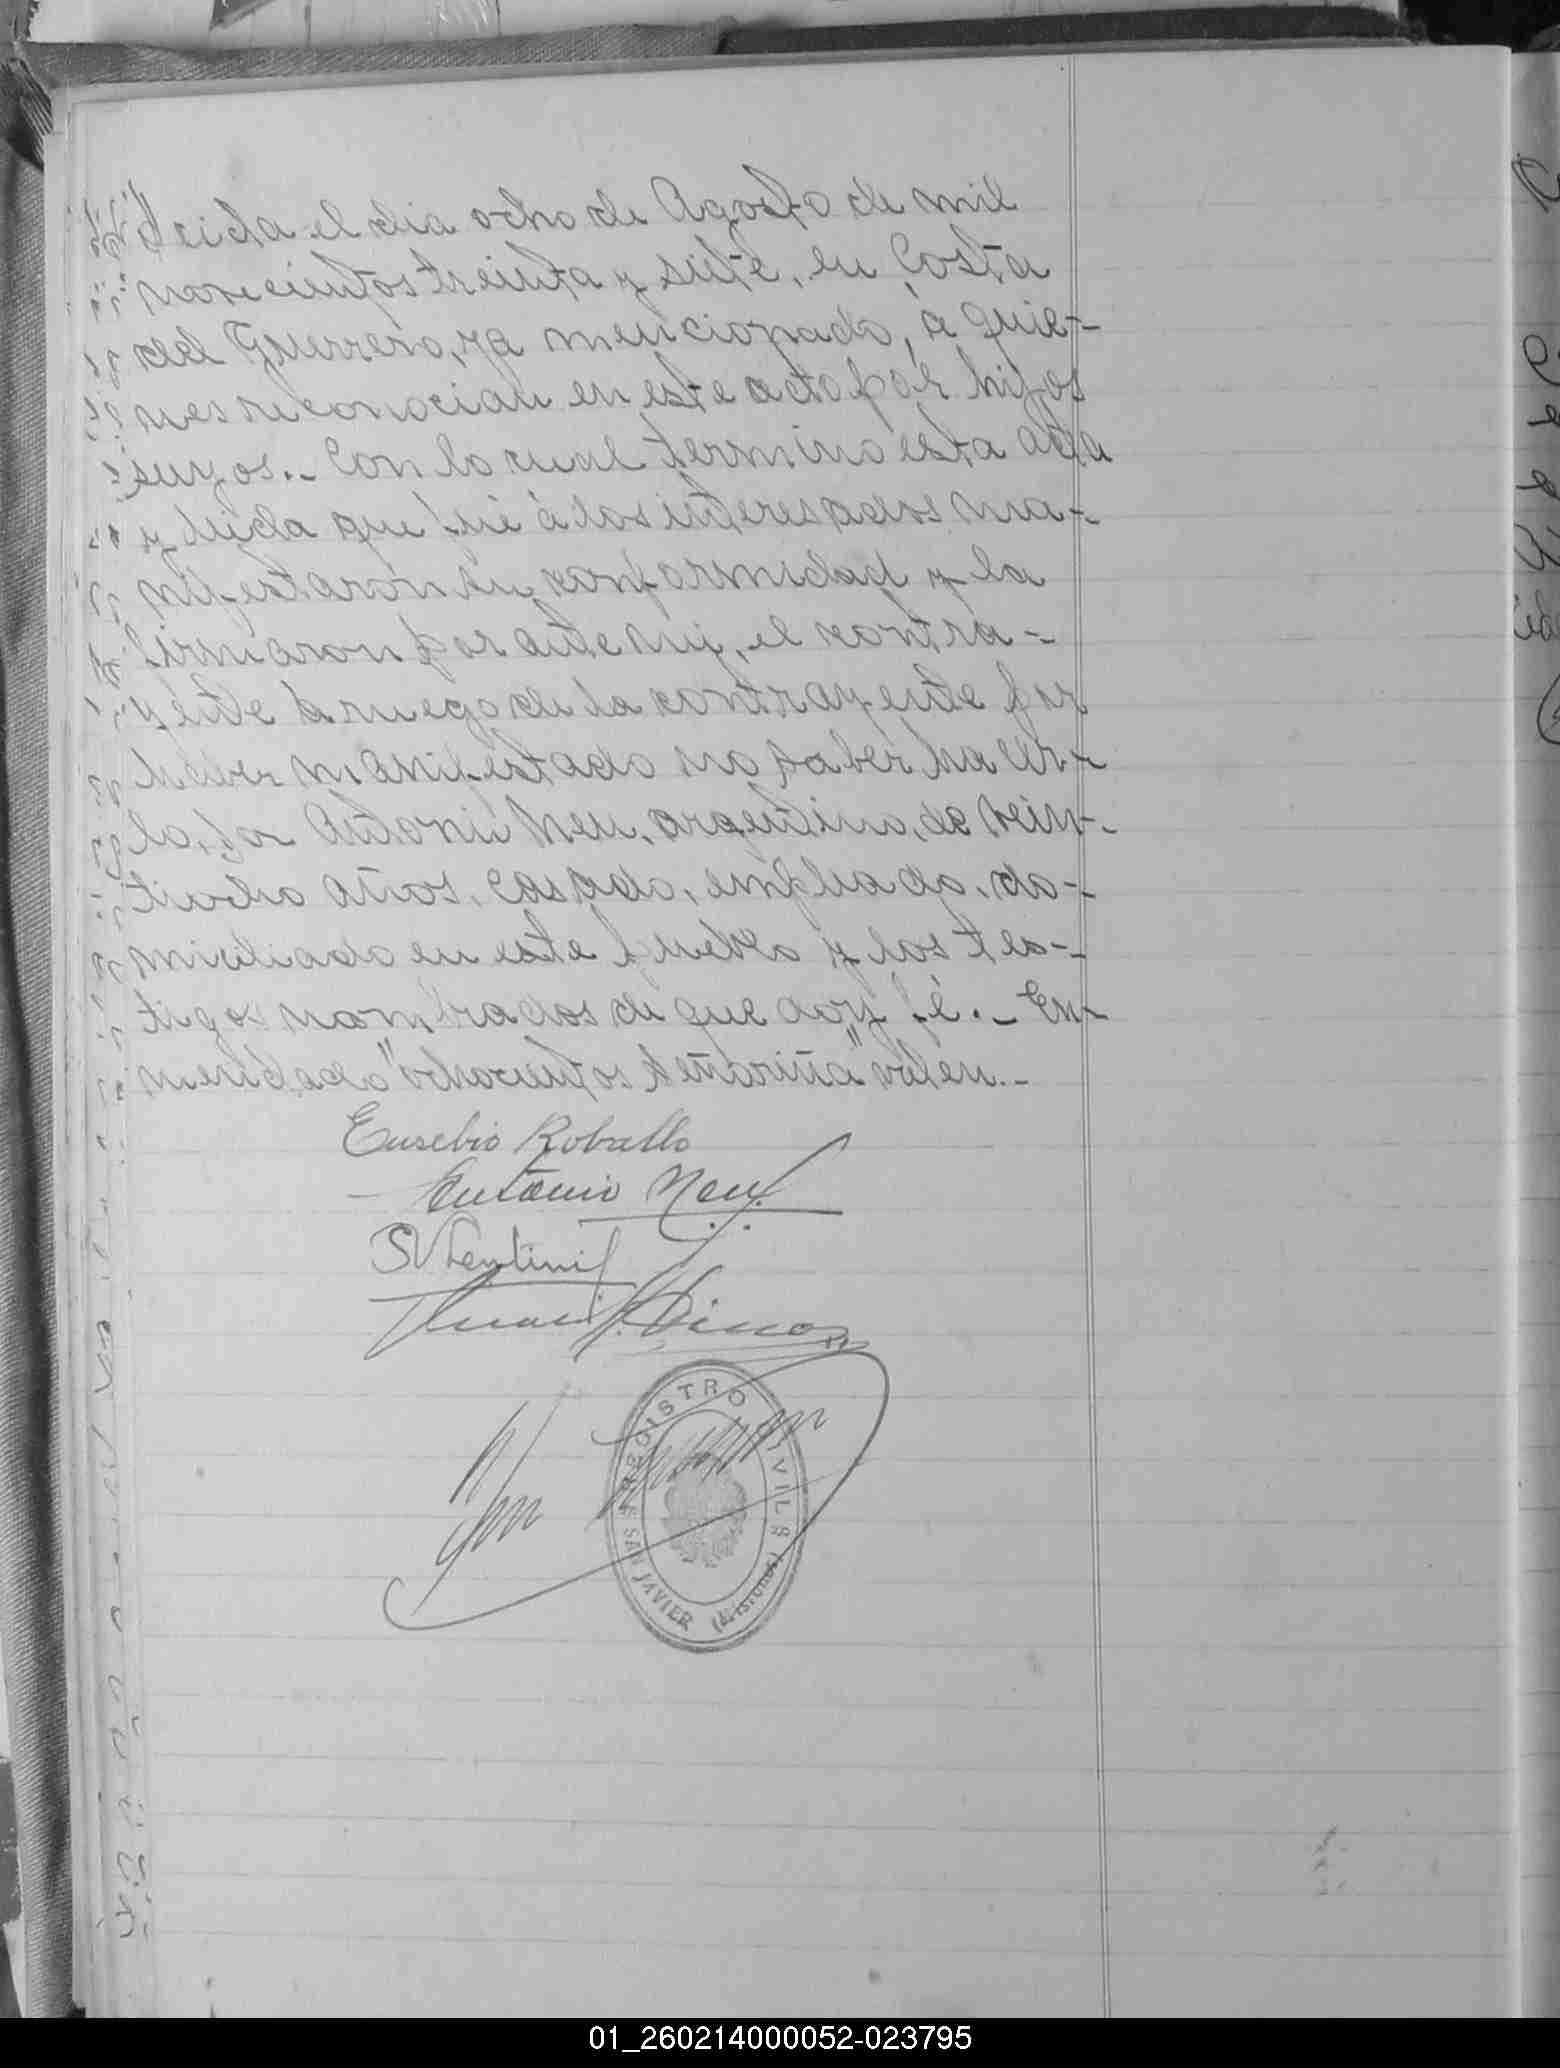 cida el dia ocho de Agosto de mil
novecientos treinta y siete, en Costa
del Guerrero, ya mencionado, á quie-
nes reconocian en este acto por hijos
suyos.- Con lo cual termino esta acta
y leida que fué á los interesados ma-
nifestaron su conformidad y la
firmaron por ante mi, el contra-
yente á ruego de la contrayente por
haber manifestado no saber hacer-
lo, por Antonio Neu, argentino, de vein-
tiocho años, casado, empleado, do-
miciliado en este pueblo y los tes-
tigos nombrados de que doy fé.- En-
mendado "ochocientos" valen.-
Eusebio Roballo
Antonio Neu
REGISTRO CIVIL
SAN JAVIER (Misiones)
01_260214000052-023795